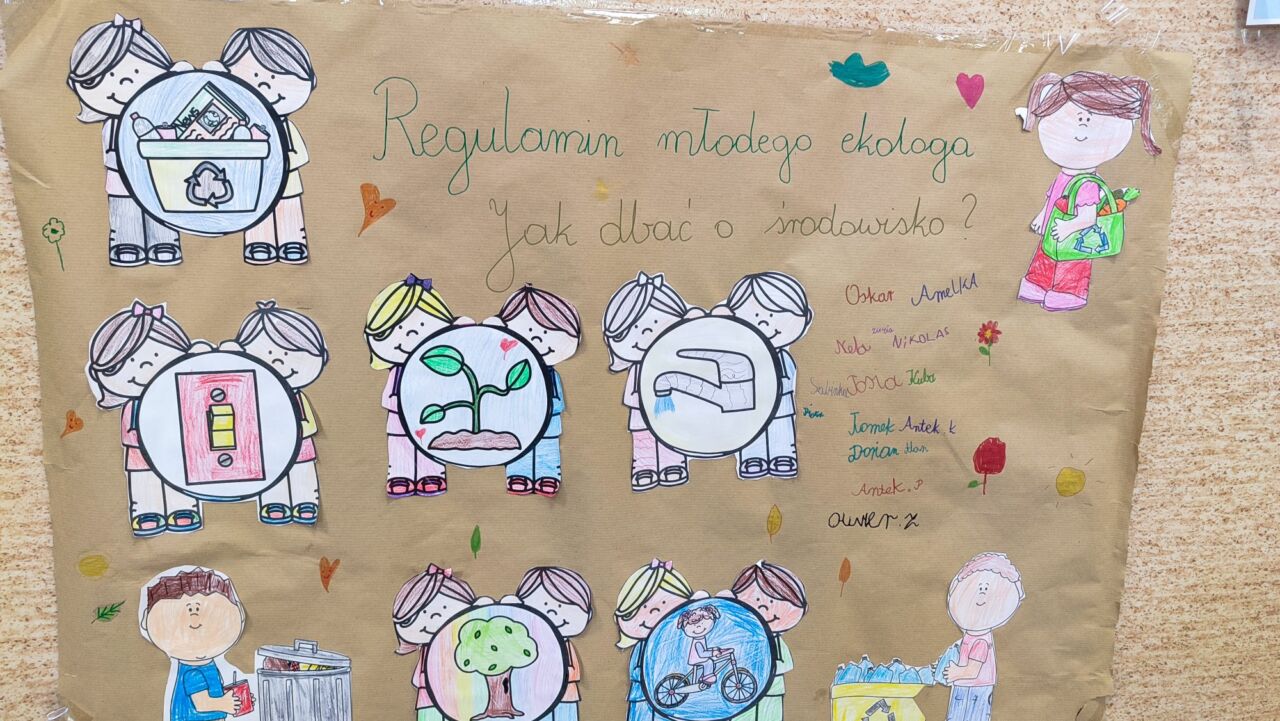 Regulamin młodego ekologa
Jak dbać o środowisko?
News
Oskar AMELKA
zuzia
Nela NIKOLAS
Sabinka Tosia Kuba
Tomek Antek k
Dorian
Antek.P
OLIWIER.Z